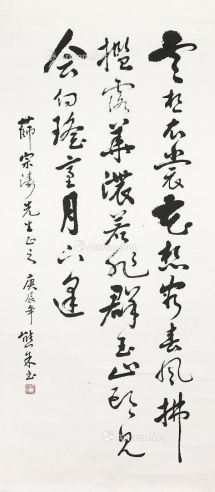 雲想衣裳花想容春風拂
檻露華濃若非群玉山頭見
会向瑤臺月下逢
宗濤先生正之 庚辰年